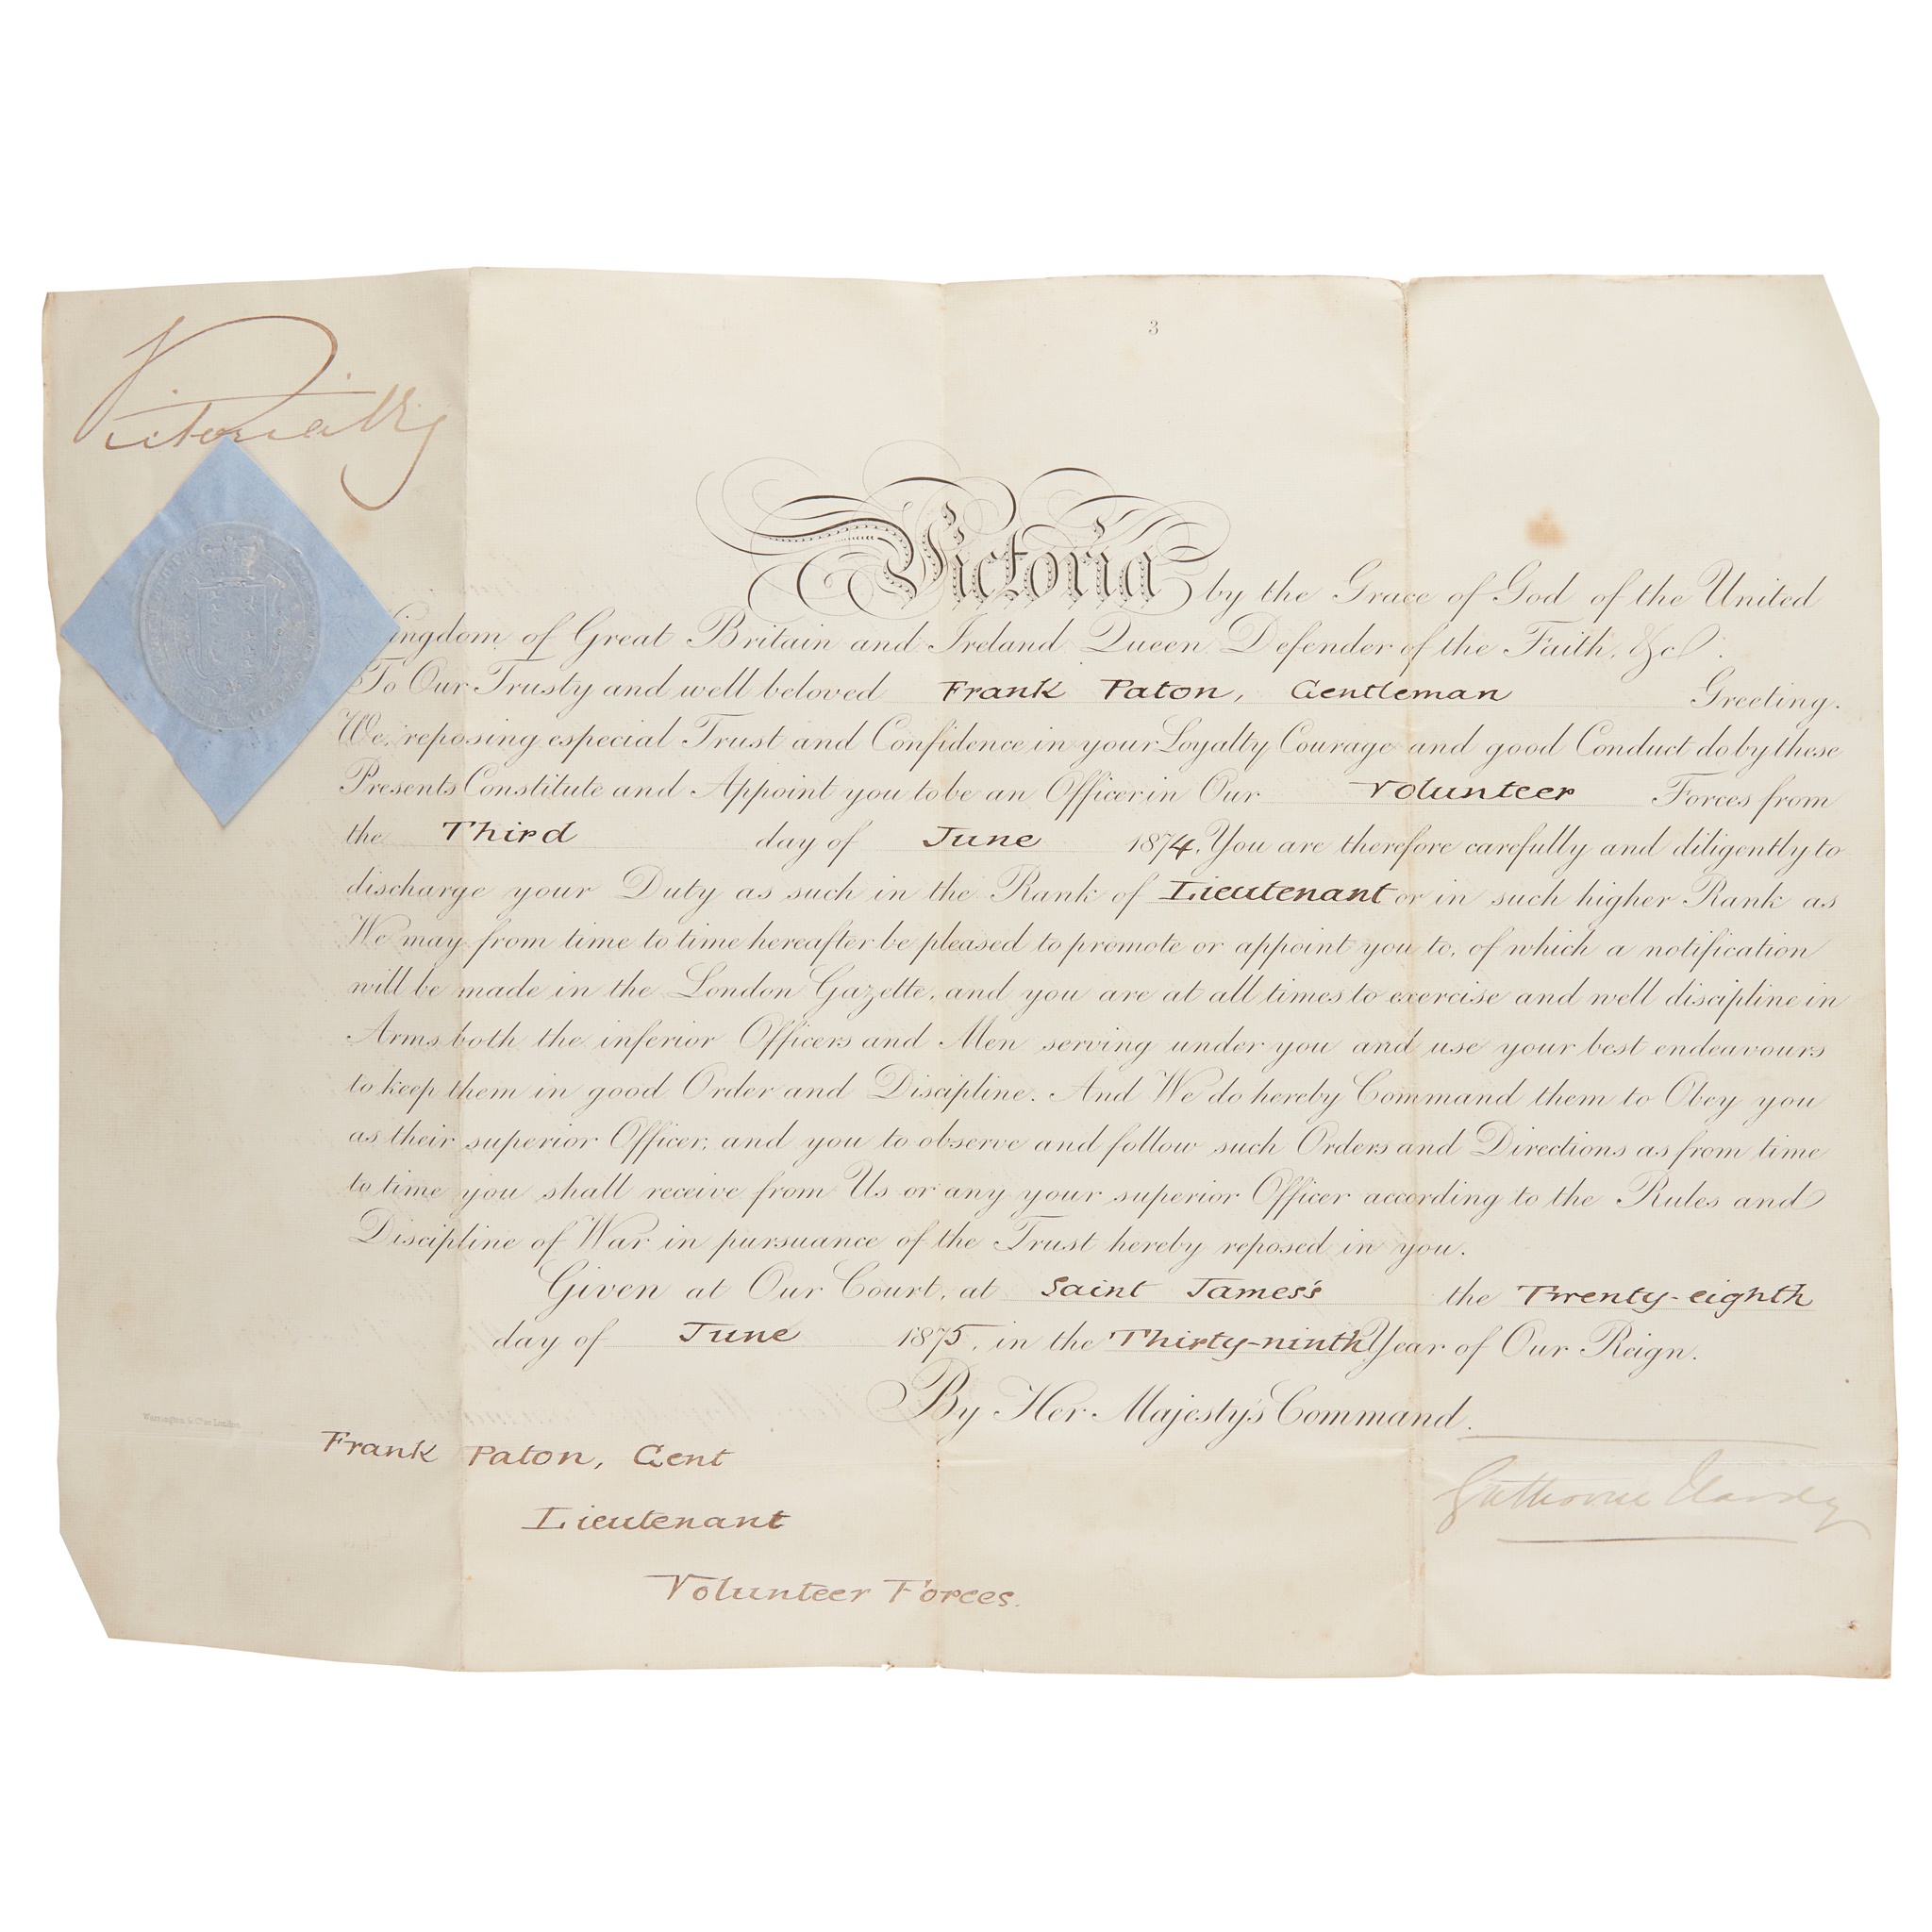 Victoria R g
3
Victoria by the Grace of God of the United
Kingdom of Great Britain and Ireland Queen Defender of the Faith, &c.
To Our Trusty and well beloved Frank Paton, Gentleman Greeting.
We, reposing especial Trust and Confidence in your Loyalty Courage and good Conduct do by these
Presents Constitute and Appoint you to be an Officer in Our Volunteer Forces from
the Third day of June 1874. You are therefore carefully and diligently to
discharge your Duty as such in the Rank of Lieutenant or in such higher Rank as
We may from time to time hereafter be pleased to promote or appoint you to, of which a notification
will be made in the London Gazette, and you are at all times to exercise and well discipline in
Arms both the inferior Officers and Men serving under you and use your best endeavours
to keep them in good Order and Discipline. And We do hereby Command them to Obey you
as their superior Officer, and you to observe and follow such Orders and Directions as from time
to time you shall receive from Us or any your superior Officer according to the Rules and
Discipline of War in pursuance of the Trust hereby reposed in you.
Given at Our Court, at Saint James's the Twenty-eighth
day of June 1875, in the Thirty-ninth Year of Our Reign.
By Her Majesty's Command.
Gathorne Hardy
Warrington & Co. London
Frank Paton, Gent
Lieutenant
Volunteer Forces.